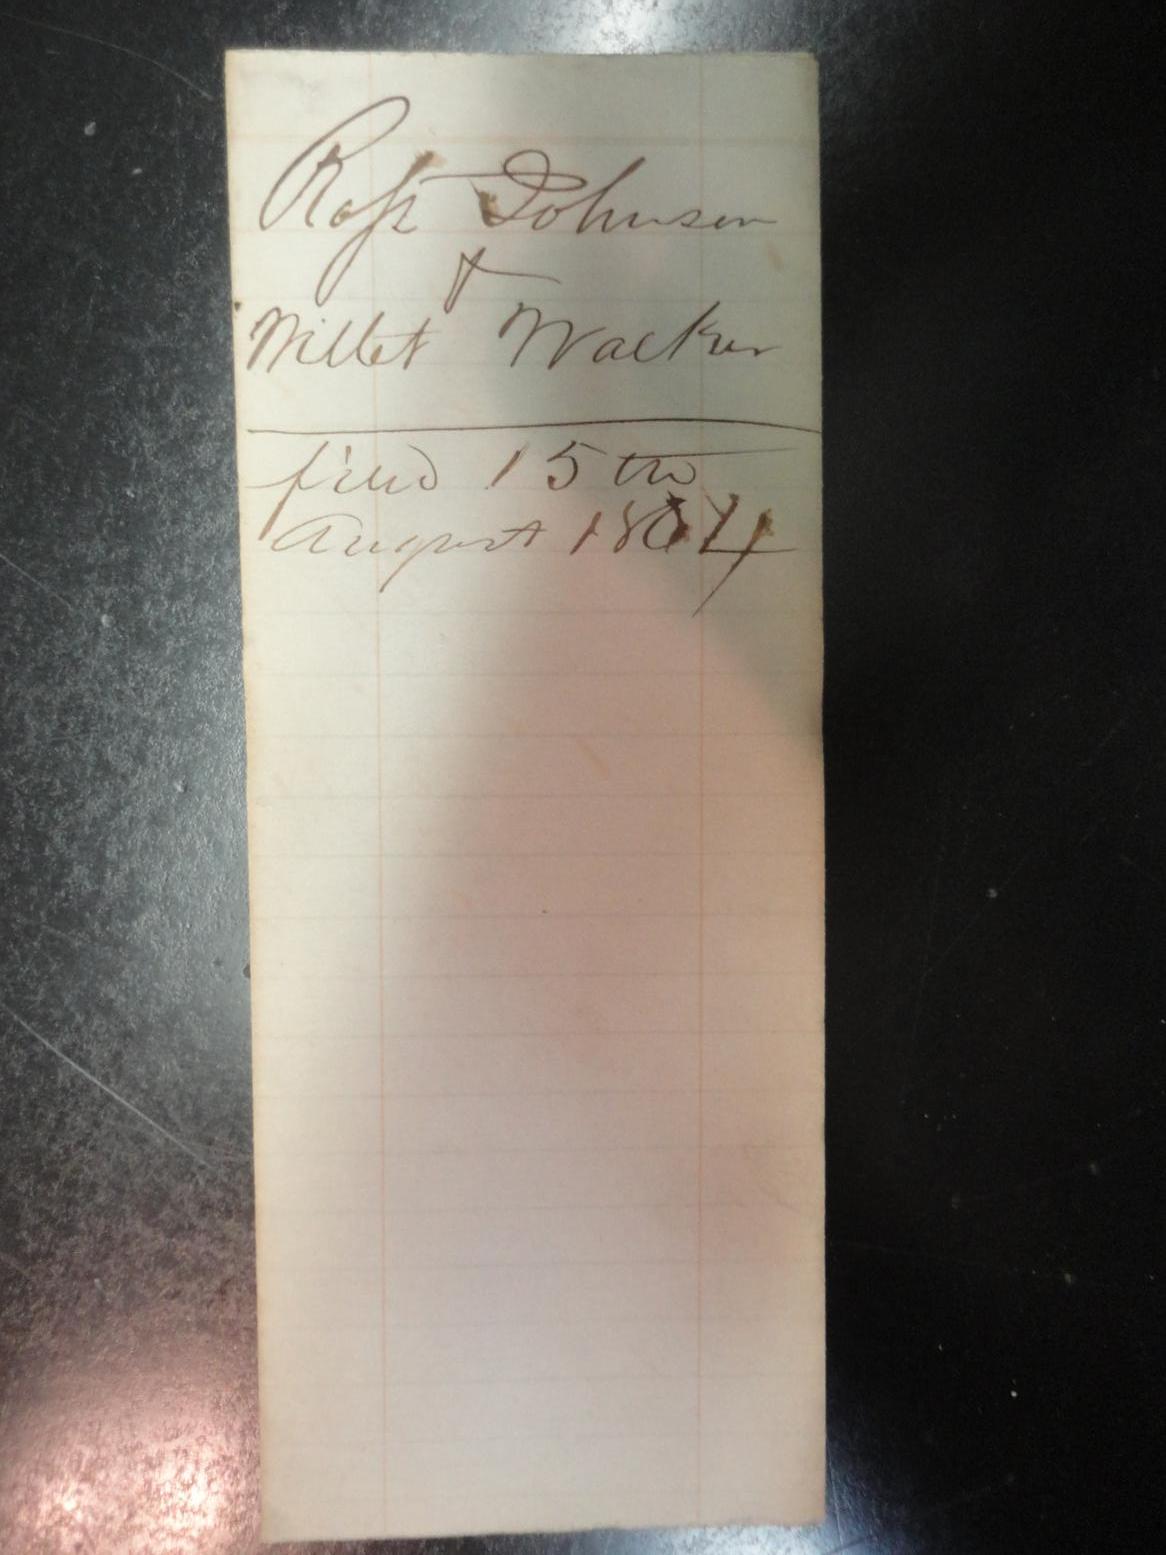 Robt Johnson
&
Willet Walker
filed 15th
August 1864